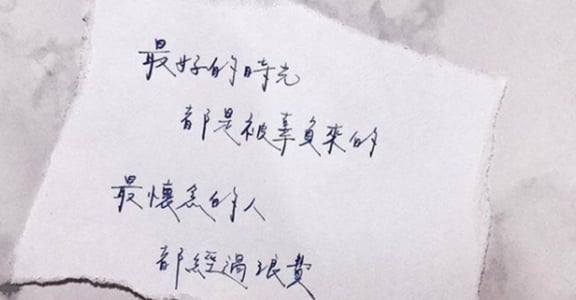 最好的時光
都是被辜負來的
最懷念的人
都經過浪費